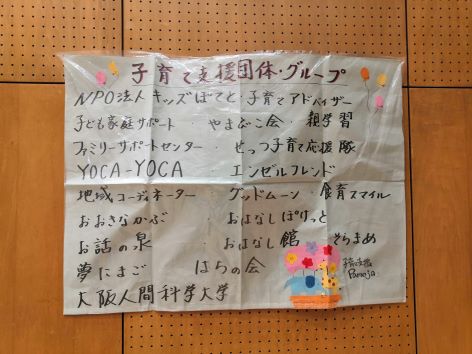 子育て支援団体・グループ
NPO法人 キッズぽてと・子育てアドバイザー
子ども家庭サポート やまびこ会・親学習
ファミリーサポートセンター・せっつ子育て応援隊
YOCA-YOCA・エンゼルフレンド
地域コーディネーター・グッドムーン・食育スマイル
おおきなかぶ・おはなしぽけっと
お話の泉・おはなし館 そらまめ
夢たまご はらの会
子育て支援
大阪人間科学大学